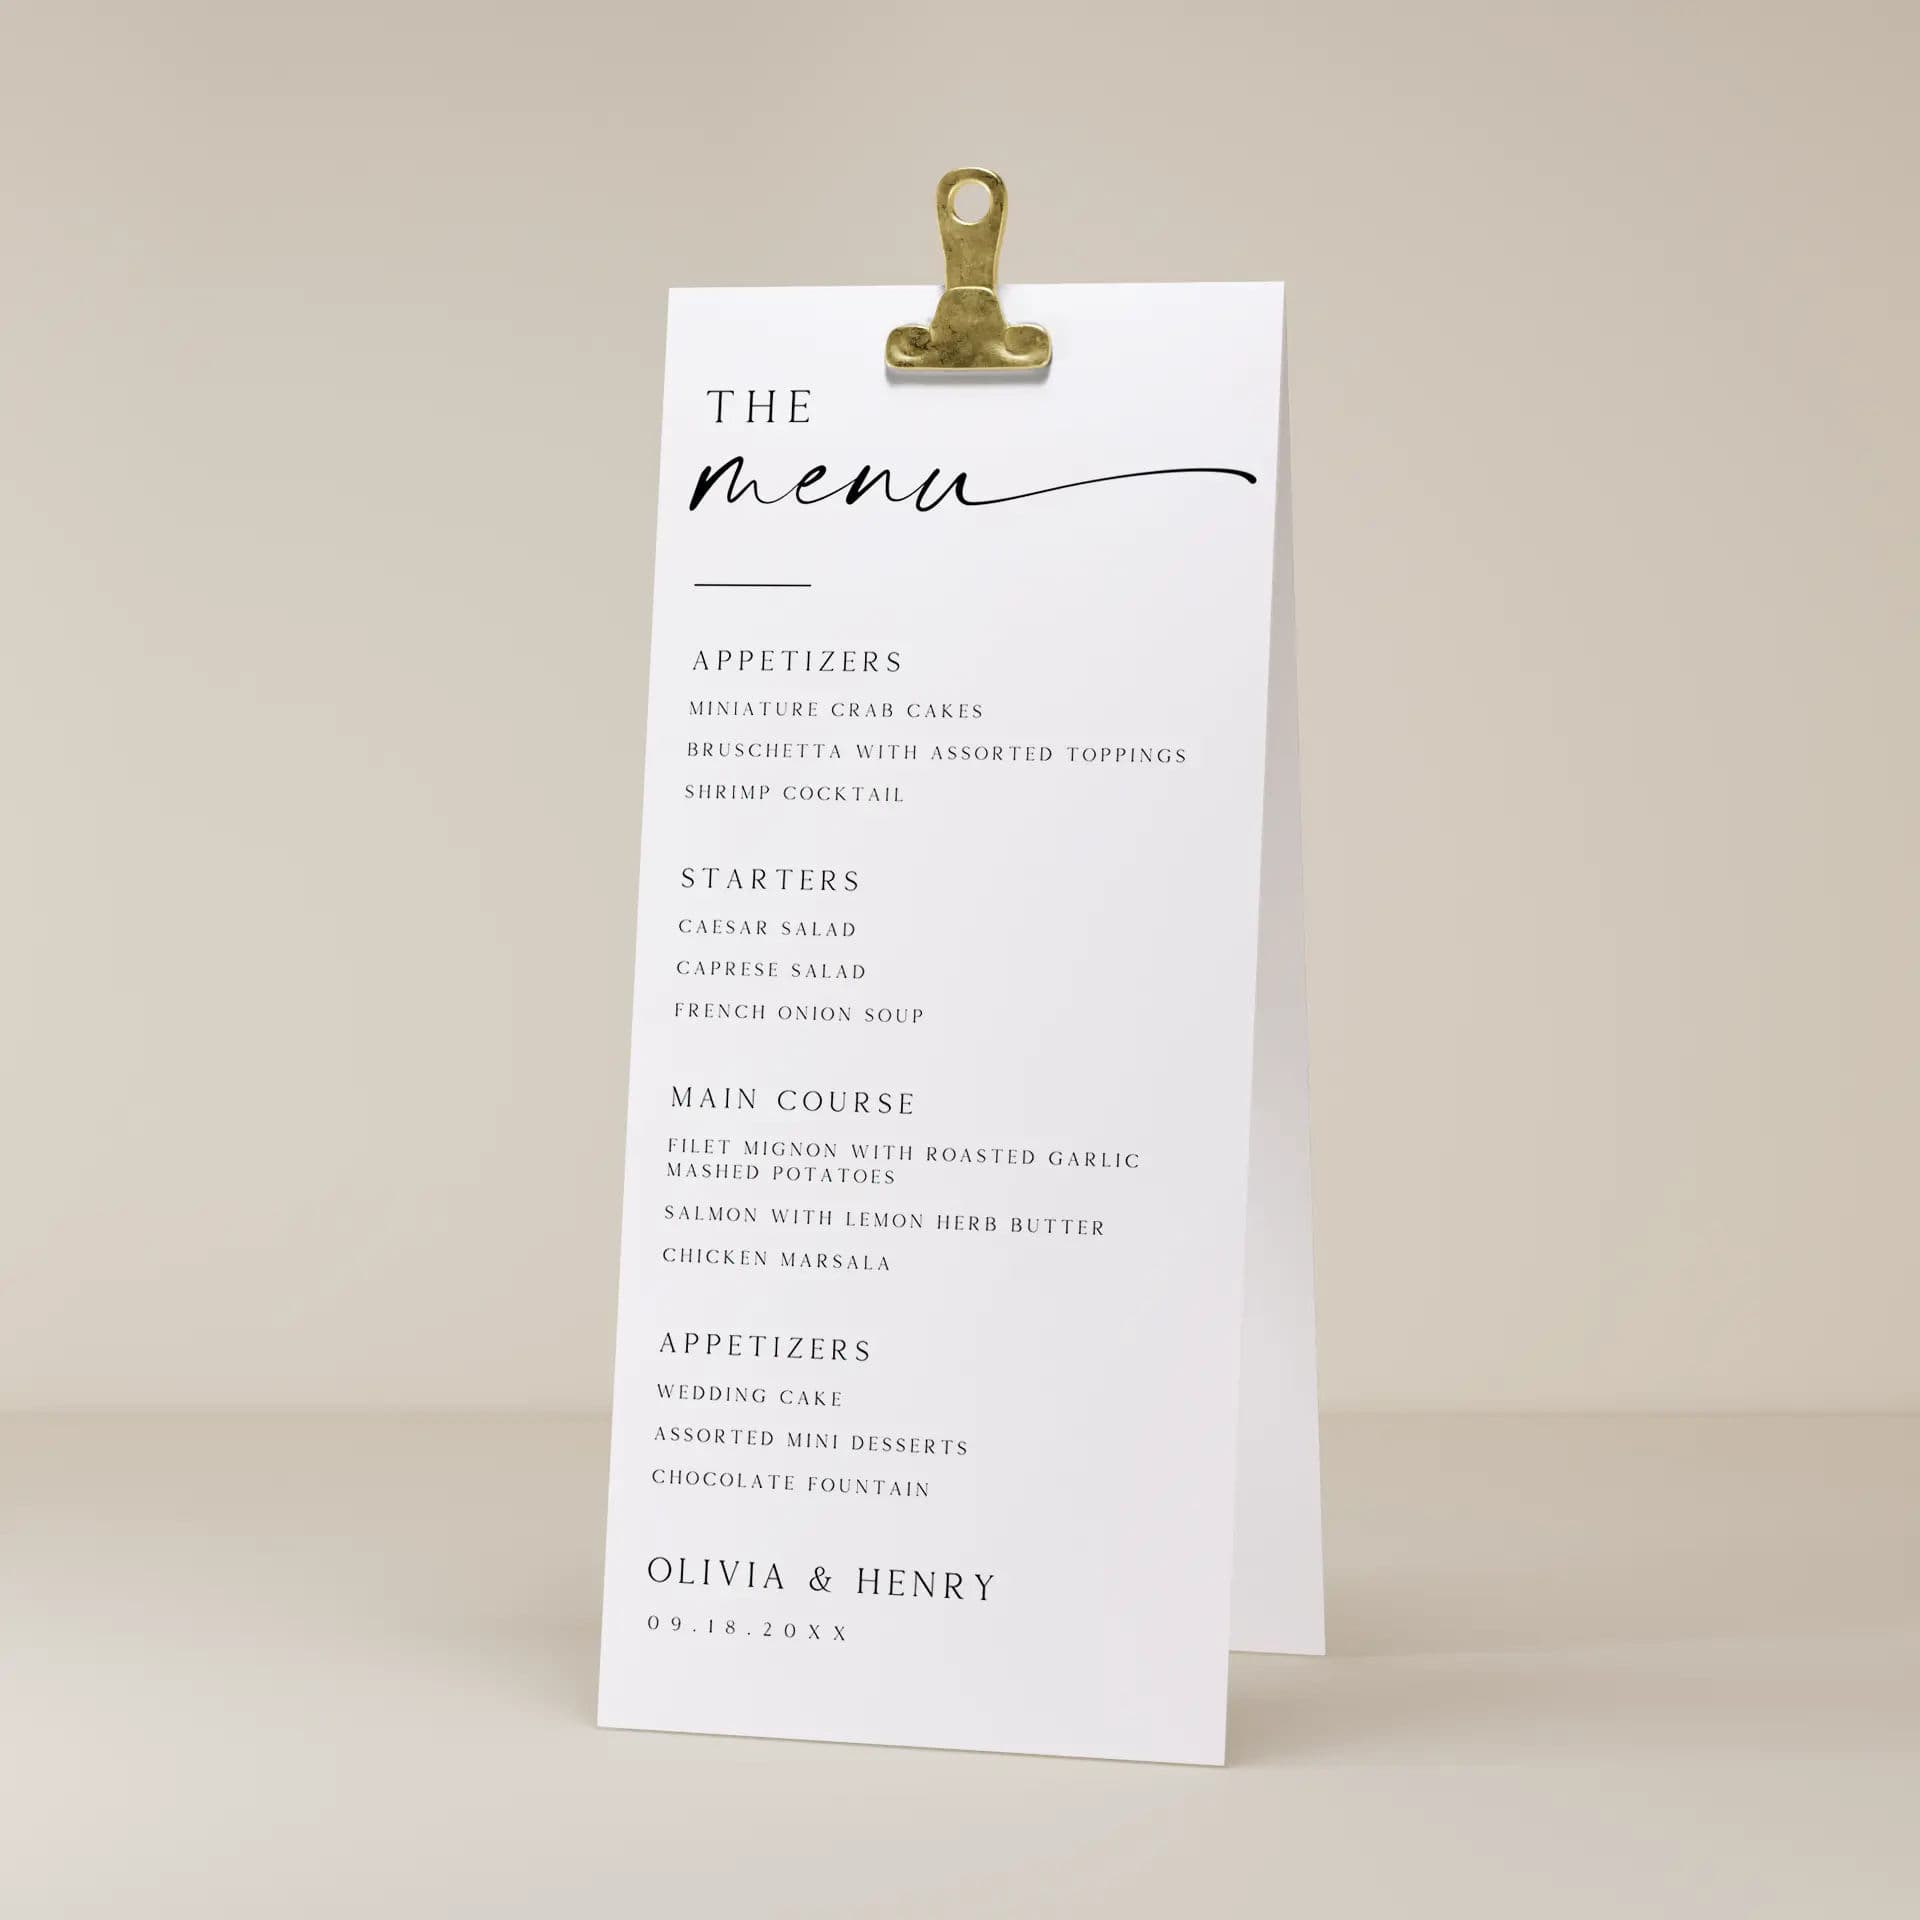 THE
menu
APPETIZERS
MINIATURE CRAB CAKES
BRUSCHETTA WITH ASSORTED TOPPINGS
SHRIMP COCKTAIL
STARTERS
CAESAR SALAD
CAPRESE SALAD
FRENCH ONION SOUP
MAIN COURSE
FILET MIGNON WITH ROASTED GARLIC
MASHED POTATOES
SALMON WITH LEMON HERB BUTTER
CHICKEN MARSALA
APPETIZERS
WEDDING CAKE
ASSORTED MINI DESSERTS
CHOCOLATE FOUNTAIN
OLIVIA & HENRY
09.18.20XX